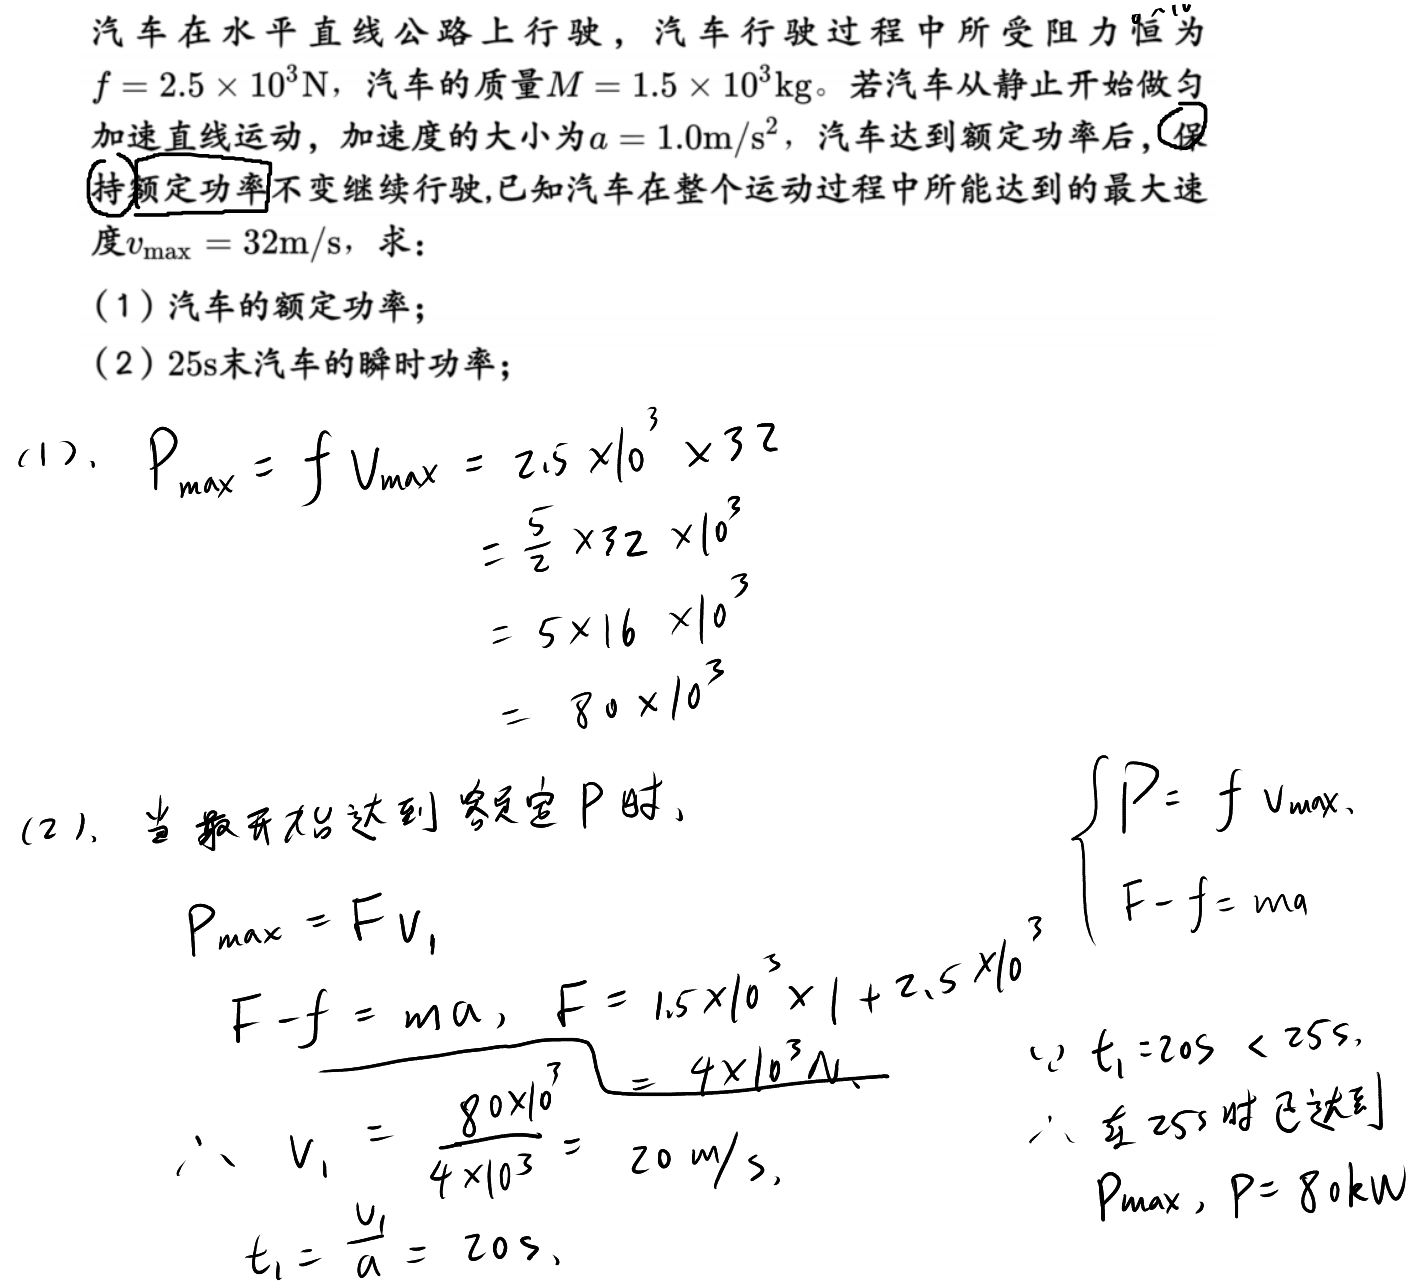 汽车在水平直线公路上行驶，汽车行驶过程中所受阻力恒为
f = 2.5 × 10³N，汽车的质量M = 1.5 × 10³kg。若汽车从静止开始做匀
加速直线运动，加速度的大小为a = 1.0m/s²，汽车达到额定功率后，保
持额定功率不变继续行驶,已知汽车在整个运动过程中所能达到的最大速
度v_max = 32m/s，求：
（1）汽车的额定功率；
（2）25s末汽车的瞬时功率；
(1). P_max = f V_max = 2.5 ×10³ ×32
= 5/2 ×32 ×10³
= 5×16 ×10³
= 80×10³
(2). 当最开始达到额定P时、
P_max = F V₁
F-f = ma, F = 1.5×10³×1+2.5×10³
= 4×10³N.
∴ V₁ = 80×10³/4×10³ = 20 m/s.
t₁ = V₁/a = 20s.
P = f V_max.
F-f = ma
∵ t₁=20s < 25s.
∴ 在25s时已达到
P_max, P=80kW